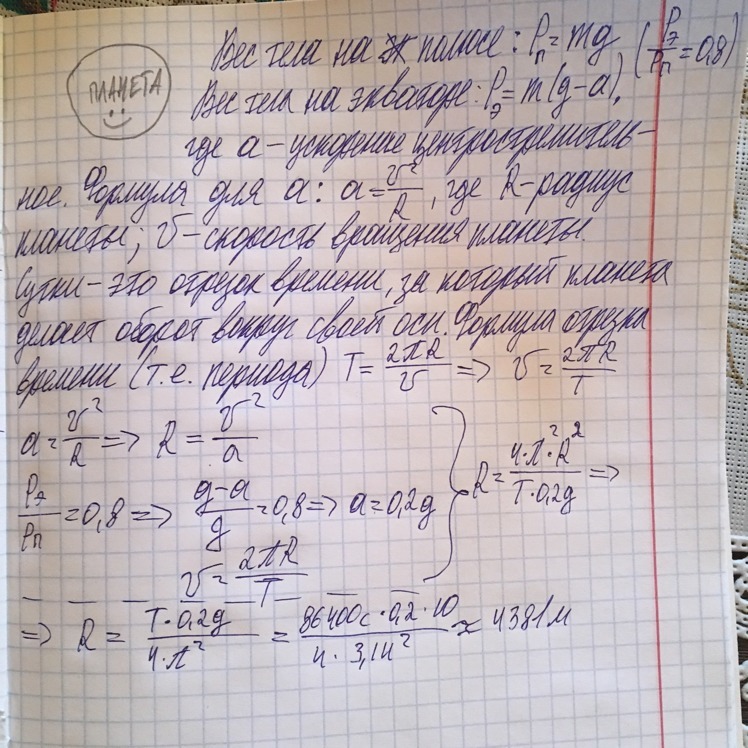 Вес тела на полюсе: Pп = mg (Pэ/Pп = 0,8)
ПЛАНЕТА
Вес тела на экваторе: Pэ = m(g-a),
где a - ускорение центростремитель-
ное. Формула для a: a = v²/R, где R - радиус
планеты; v - скорость вращения планеты.
Сутки - это отрезок времени, за который планета
делает оборот вокруг своей оси. Формула отрезка
времени (т.е. периода) T = 2πR/v => v = 2πR/T
a = v²/R => R = v²/a
Pэ/Pп = 0,8 => (g-a)/g = 0,8 => a = 0,2g } R = 4·π²·R²/T·0,2g =>
v = 2πR/T
=> R = T·0,2g/4·π² = 86400с·0,2·10/4·3,14² ≈ 4381м